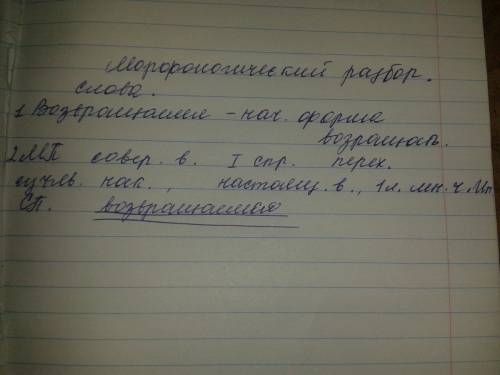 Морфологический разбор.
слова.
1 Возвращаемся - нач. форма
возращать.
2 МП совер. в. I спр. перех.
изъяв. нак., настоящ. в., 1 л. мн. ч
СП. возвращаемся